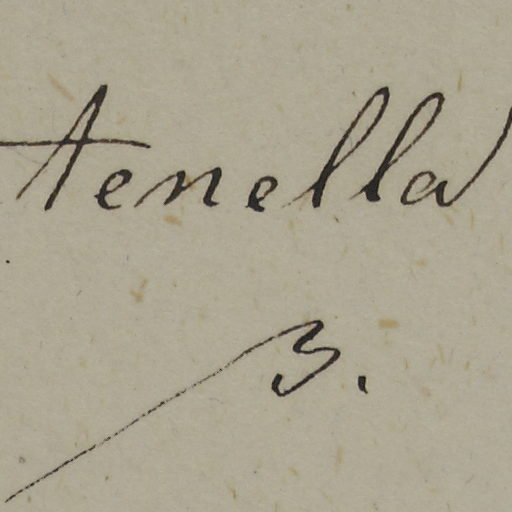 tenella
3.